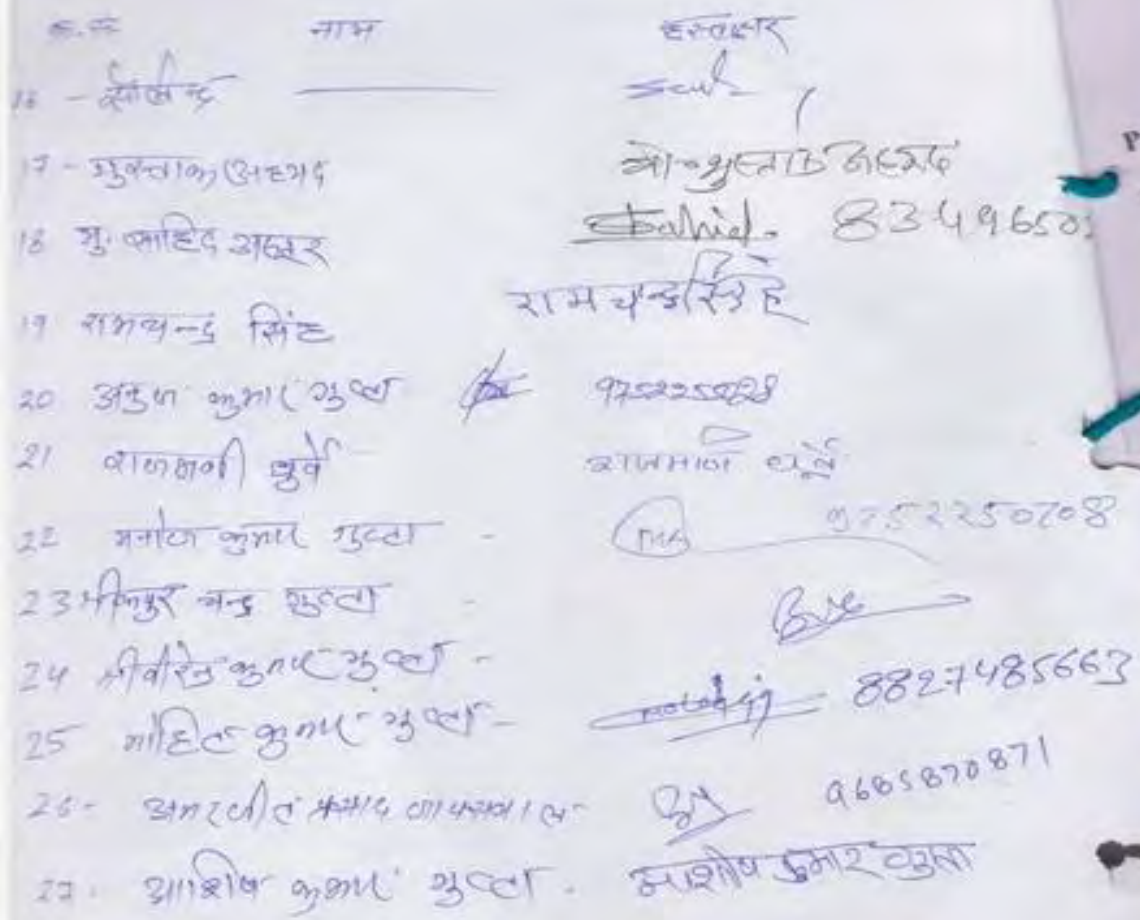 क्र.सं. नाम हस्ताक्षर
16 -
17 - मुस्ताक अहमद मो० मुस्ताक अहमद
18 मु. साहिद अख्तर Sahid. 83496503
19 रामचन्द्र सिंह रामचन्द्र सिंह
20 अरुण कुमार गुप्ता
21 राजमणी धुर्वे राजमणि धुर्वे
22 मनोज कुमार गुप्ता -
23 श्री कपुर चन्द्र गुप्ता -
24 श्री वीरेन्द्र कुमार गुप्ता -
25 मोहित कुमार गुप्ता - 8827485663
26 - अमरजीत प्रसाद जायसवाल - 9685870871
27. आशिष कुमार गुप्ता. आशीष कुमार गुप्ता